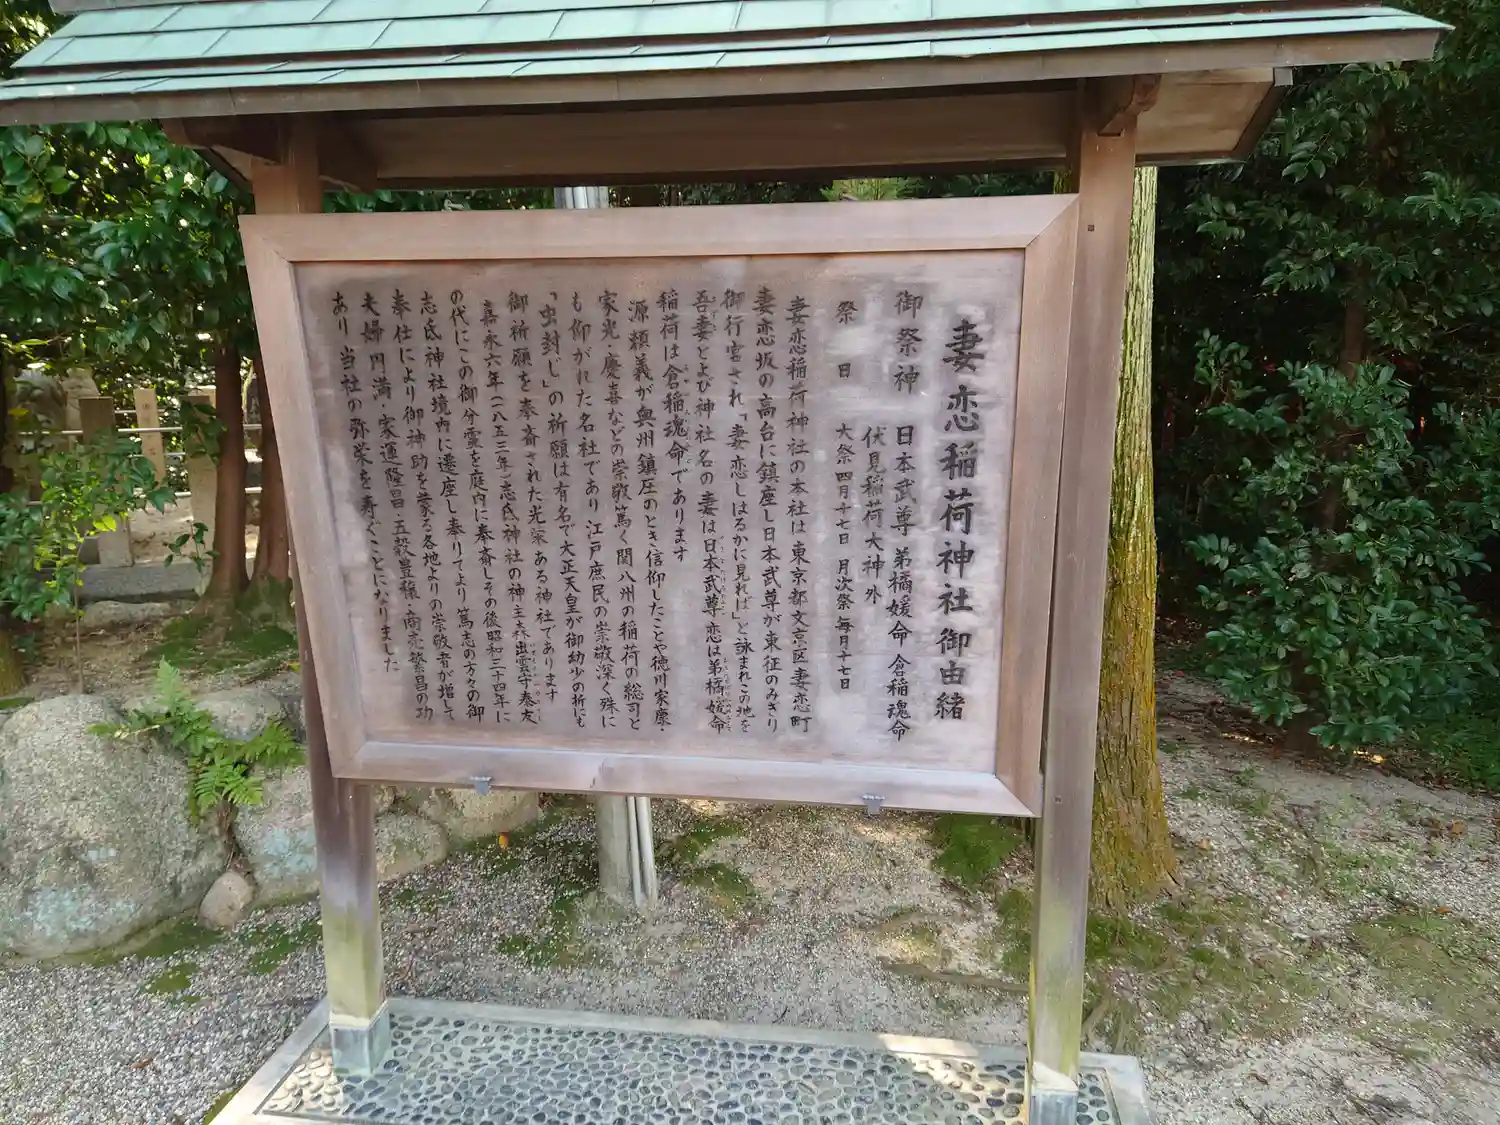 妻恋稲荷神社御由緒
御祭神 日本武尊 弟橘媛命 倉稲魂命
伏見稲荷大神外
祭日 大祭四月十七日 月次祭毎月十七日
妻恋稲荷神社の本社は東京都文京区妻恋町
妻恋坂の高台に鎮座し日本武尊が東征のみぎり
御行宮され「妻恋しはるかに見れば」と詠まれこの地を
吾妻とよび神社名の妻は日本武尊 恋は弟橘媛命
稲荷は倉稲魂命であります
源頼義が奥州鎮圧のとき信仰したことや徳川家康・
家光・慶喜などの崇敬篤く関八州の稲荷の総司と
も仰がれた名社であり江戸庶民の崇敬深く殊に
「虫封じ」の祈願は有名で大正天皇が御幼少の折にも
御祈願を奉斎された光栄ある神社であります
嘉永六年(一八五三年)志氐神社の神主森出雲守泰友
の代にこの御分霊を庭内に奉斎しその後昭和三十四年に
志氐神社境内に遷座し奉りてより篤志の方々の御
奉仕により御神助を蒙る各地よりの崇敬者が増して
夫婦円満・家運隆昌・五穀豊穣・商売繁昌の功
あり当社の弥栄を寿ぐことになりました